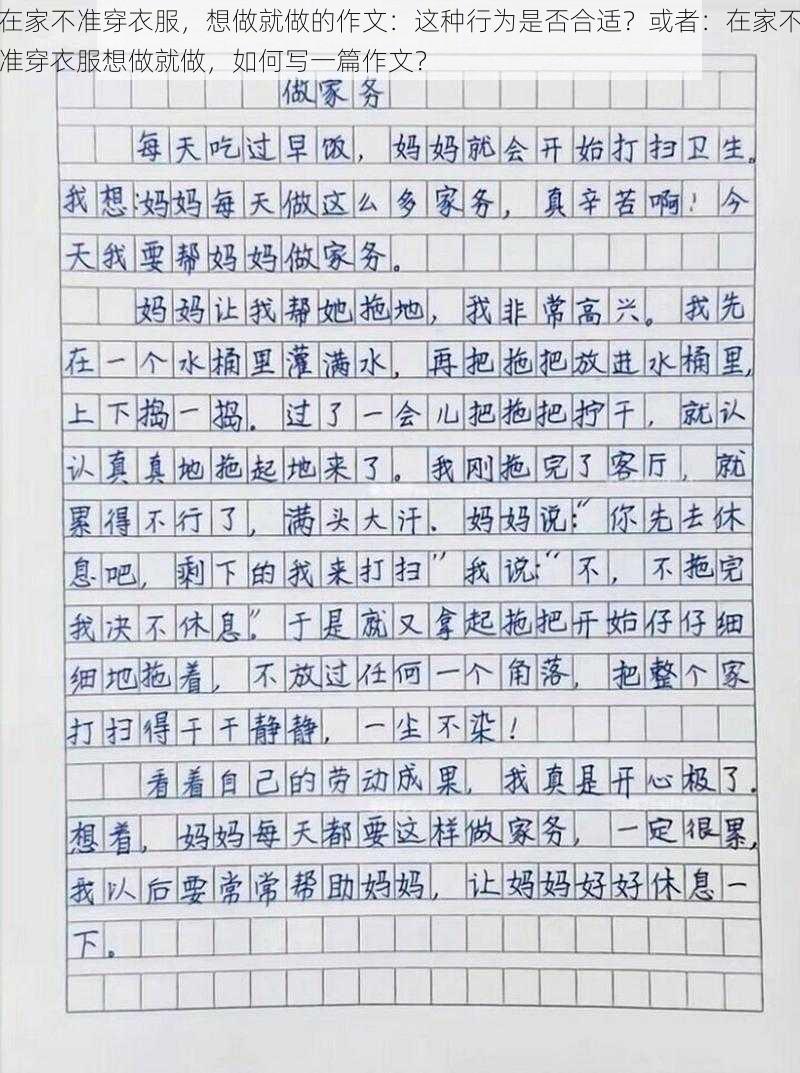 在家不准穿衣服，想做就做的作文：这种行为是否合适？或者：在家不
准穿衣服想做就做，如何写一篇作文？
做家务
每天吃过早饭，妈妈就会开始打扫卫生。
我想：妈妈每天做这么多家务，真辛苦啊！今
天我要帮妈妈做家务。
妈妈让我帮她拖地，我非常高兴。我先
在一个水桶里灌满水，再把拖把放进水桶里，
上下捣一捣．过了一会儿把拖把拧干，就认
认真真地拖起地来了。我刚拖完了客厅，就
累得不行了，满头大汗．妈妈说：“你先去休
息吧，剩下的我来打扫”我说：“不，不拖完
我决不休息”。于是就又拿起拖把开始仔仔细
细地拖着，不放过任何一个角落，把整个家
打扫得干干静静，一尘不染！
看着自己的劳动成果，我真是开心极了．
想着，妈妈每天都要这样做家务，一定很累，
我以后要常常帮助妈妈，让妈妈好好休息一
下。